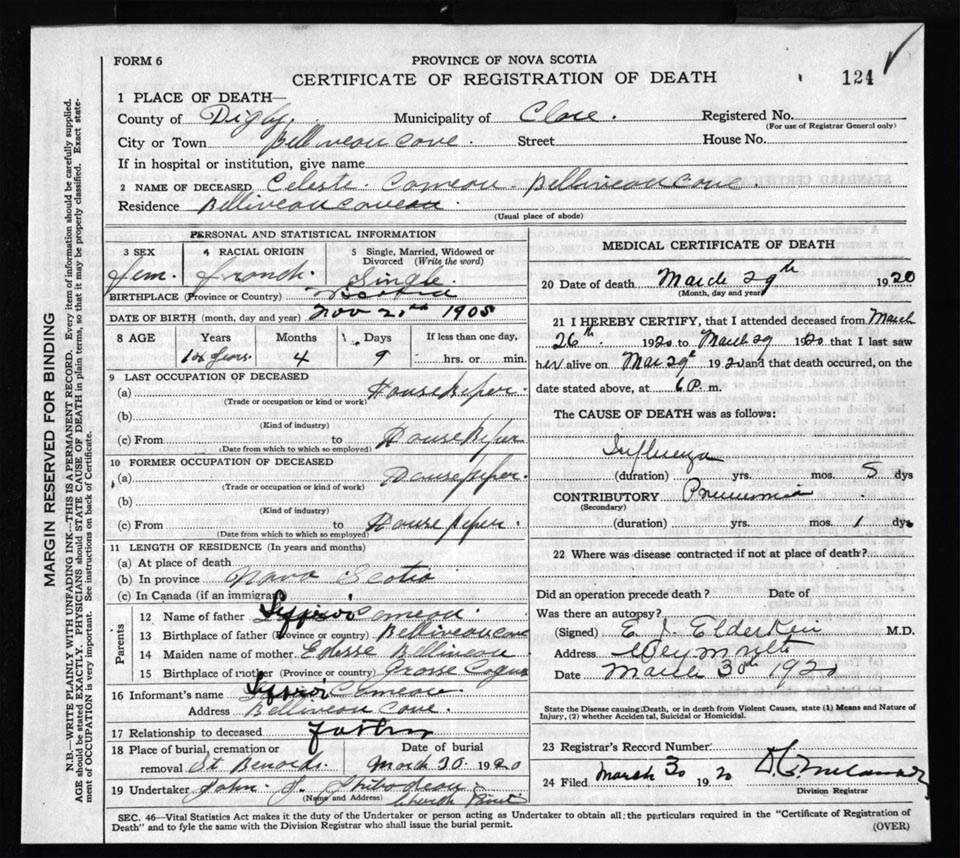 FORM 6
PROVINCE OF NOVA SCOTIA
CERTIFICATE OF REGISTRATION OF DEATH
124
1 PLACE OF DEATH—
County of Digby. Municipality of Clare. Registered No.
(For use of Registrar General only)
City or Town Belliveau Cove. Street House No.
If in hospital or institution, give name
2 NAME OF DECEASED Celeste Comeau. Belliveau Cove.
Residence
(Usual place of abode)
PERSONAL AND STATISTICAL INFORMATION
3 SEX 4 RACIAL ORIGIN 5 Single, Married, Widowed or Divorced (Write the word)
fem. french. Single
BIRTHPLACE (Province or Country)
DATE OF BIRTH (month, day and year) Nov 1905
8 AGE Years Months Days If less than one day,
4 9 hrs. or min.
9 LAST OCCUPATION OF DECEASED
(a) Housekeper.
(Trade or occupation or kind or work)
(b)
(Kind of industry)
(c) From to Housekeper
(Date from which to which so employed)
10 FORMER OCCUPATION OF DECEASED
(a) Housekeper.
(Trade or occupation or kind of work)
(b)
(Kind of industry)
(c) From to Housekeper.
(Date from which to which so employed)
11 LENGTH OF RESIDENCE (In years and months)
(a) At place of death
(b) In province Nova Scotia
(c) In Canada (if an immigrant)
Parents
12 Name of father Comeau.
13 Birthplace of father (Province or country) Belliveau Cove
14 Maiden name of mother Belliveau
15 Birthplace of mother (Province or country) Grosse Coques
16 Informant's name Comeau
Address Belliveau Cove.
17 Relationship to deceased father
18 Place of burial, cremation or removal Date of burial
St. March 30. 1920
19 Undertaker John Thibodeau
(Name and Address) Church Point
MEDICAL CERTIFICATE OF DEATH
20 Date of death March 29th 1920
(Month, day and year)
21 I HEREBY CERTIFY, that I attended deceased from March
26th. 1920 to March 29 1920 that I last saw
her alive on Mar 29th 1920 and that death occurred, on the
date stated above, at 6 P. m.
The CAUSE OF DEATH was as follows:
Influenza
(duration) yrs. mos. 5 dys
CONTRIBUTORY Pneumonia
(Secondary)
(duration) yrs. mos. 1 dys
22 Where was disease contracted if not at place of death?
Did an operation precede death? Date of
Was there an autopsy?
(Signed) E. J. Elderkin M.D.
Address Weymouth
Date March 30th 1920
State the Disease causing Death, or in death from Violent Causes, state (1) Means and Nature of
Injury, (2) whether Accidental, Suicidal or Homicidal.
23 Registrar's Record Number
24 Filed March 30 1920
Division Registrar
SEC. 46—Vital Statistics Act makes it the duty of the Undertaker or person acting as Undertaker to obtain all the particulars required in the "Certificate of Registration of
Death" and to fyle the same with the Division Registrar who shall issue the burial permit. (OVER)
MARGIN RESERVED FOR BINDING
N.B.—WRITE PLAINLY WITH UNFADING INK—THIS IS A PERMANENT RECORD. Every item of information should be carefully supplied.
AGE should be stated EXACTLY. PHYSICIANS should STATE CAUSE OF DEATH in plain terms, so that it may be properly classified. Exact statement of OCCUPATION is very important. See instructions on back of Certificate.